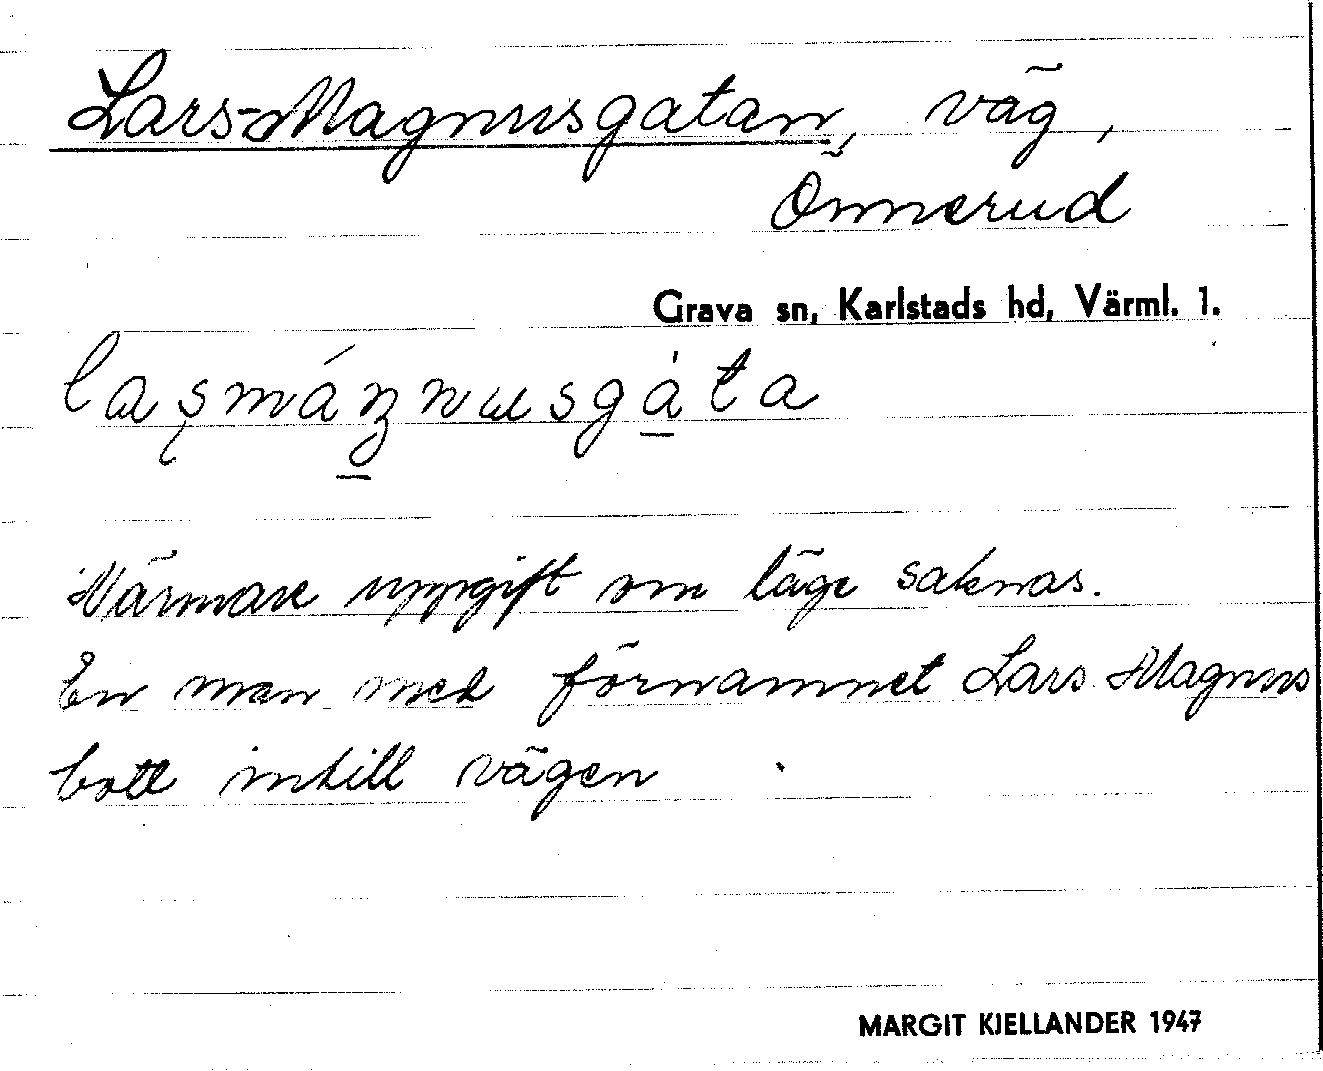 Lars-Magnusgatan, väg,
Önnerud
Grava sn, Karlstads hd, Värml. 1.
Närmare uppgift om läge saknas.
En man med förnamnet Lars Magnus
bott intill vägen
MARGIT KJELLANDER 1947